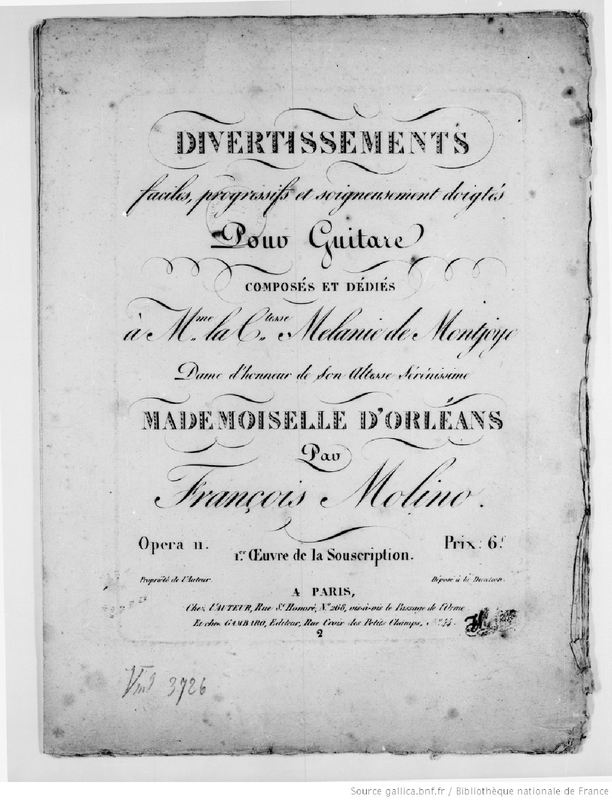 DIVERTISSEMENTS
faciles, progressifs et soigneusement doigtés
Pour Guitare
COMPOSÉS ET DÉDIÉS
à Mme. la Ctesse. Melanie de Montjoye
Dame d'honneur de Son Altesse Sérénissime
MADEMOISELLE D'ORLÉANS
Par
François Molino.
Opera 11. Prix: 6f
1er. Œuvre de la Souscription.
Propriété de l'Auteur. Déposé à la Direction.
A PARIS,
Chez L'AUTEUR, Rue St. Honoré, No. 268, vis-à-vis le Passage de l'Orme
Et chez GAMBARO, Editeur, Rue Croix des Petits Champs,
2
Vm9 3726
Source gallica.bnf.fr / Bibliothèque nationale de France